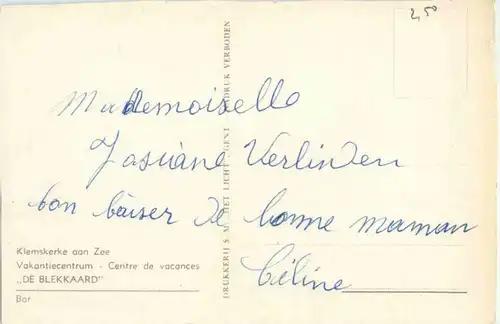 2,50
Mademoiselle
Josiane Verlinden
bon baiser de bonne maman
Céline
Klemskerke aan Zee
Vakantiecentrum - Centre de vacances
„DE BLEKKAARD"
Bar
DRUKKERIJ S. M. HET LICHT, GENT DRUK VERBODEN